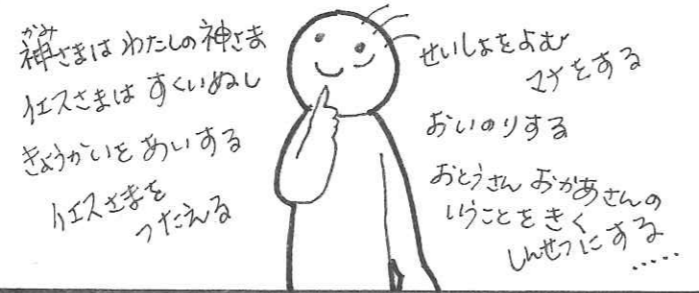 かみ
神さまは わたしの神さま
イエスさまは すくいぬし
きょうかいを あいする
イエスさまを
つたえる
せいしょをよむ
マナをする
おいのりする
おとうさん おかあさんの
いうことをきく
しんせつにする
.....